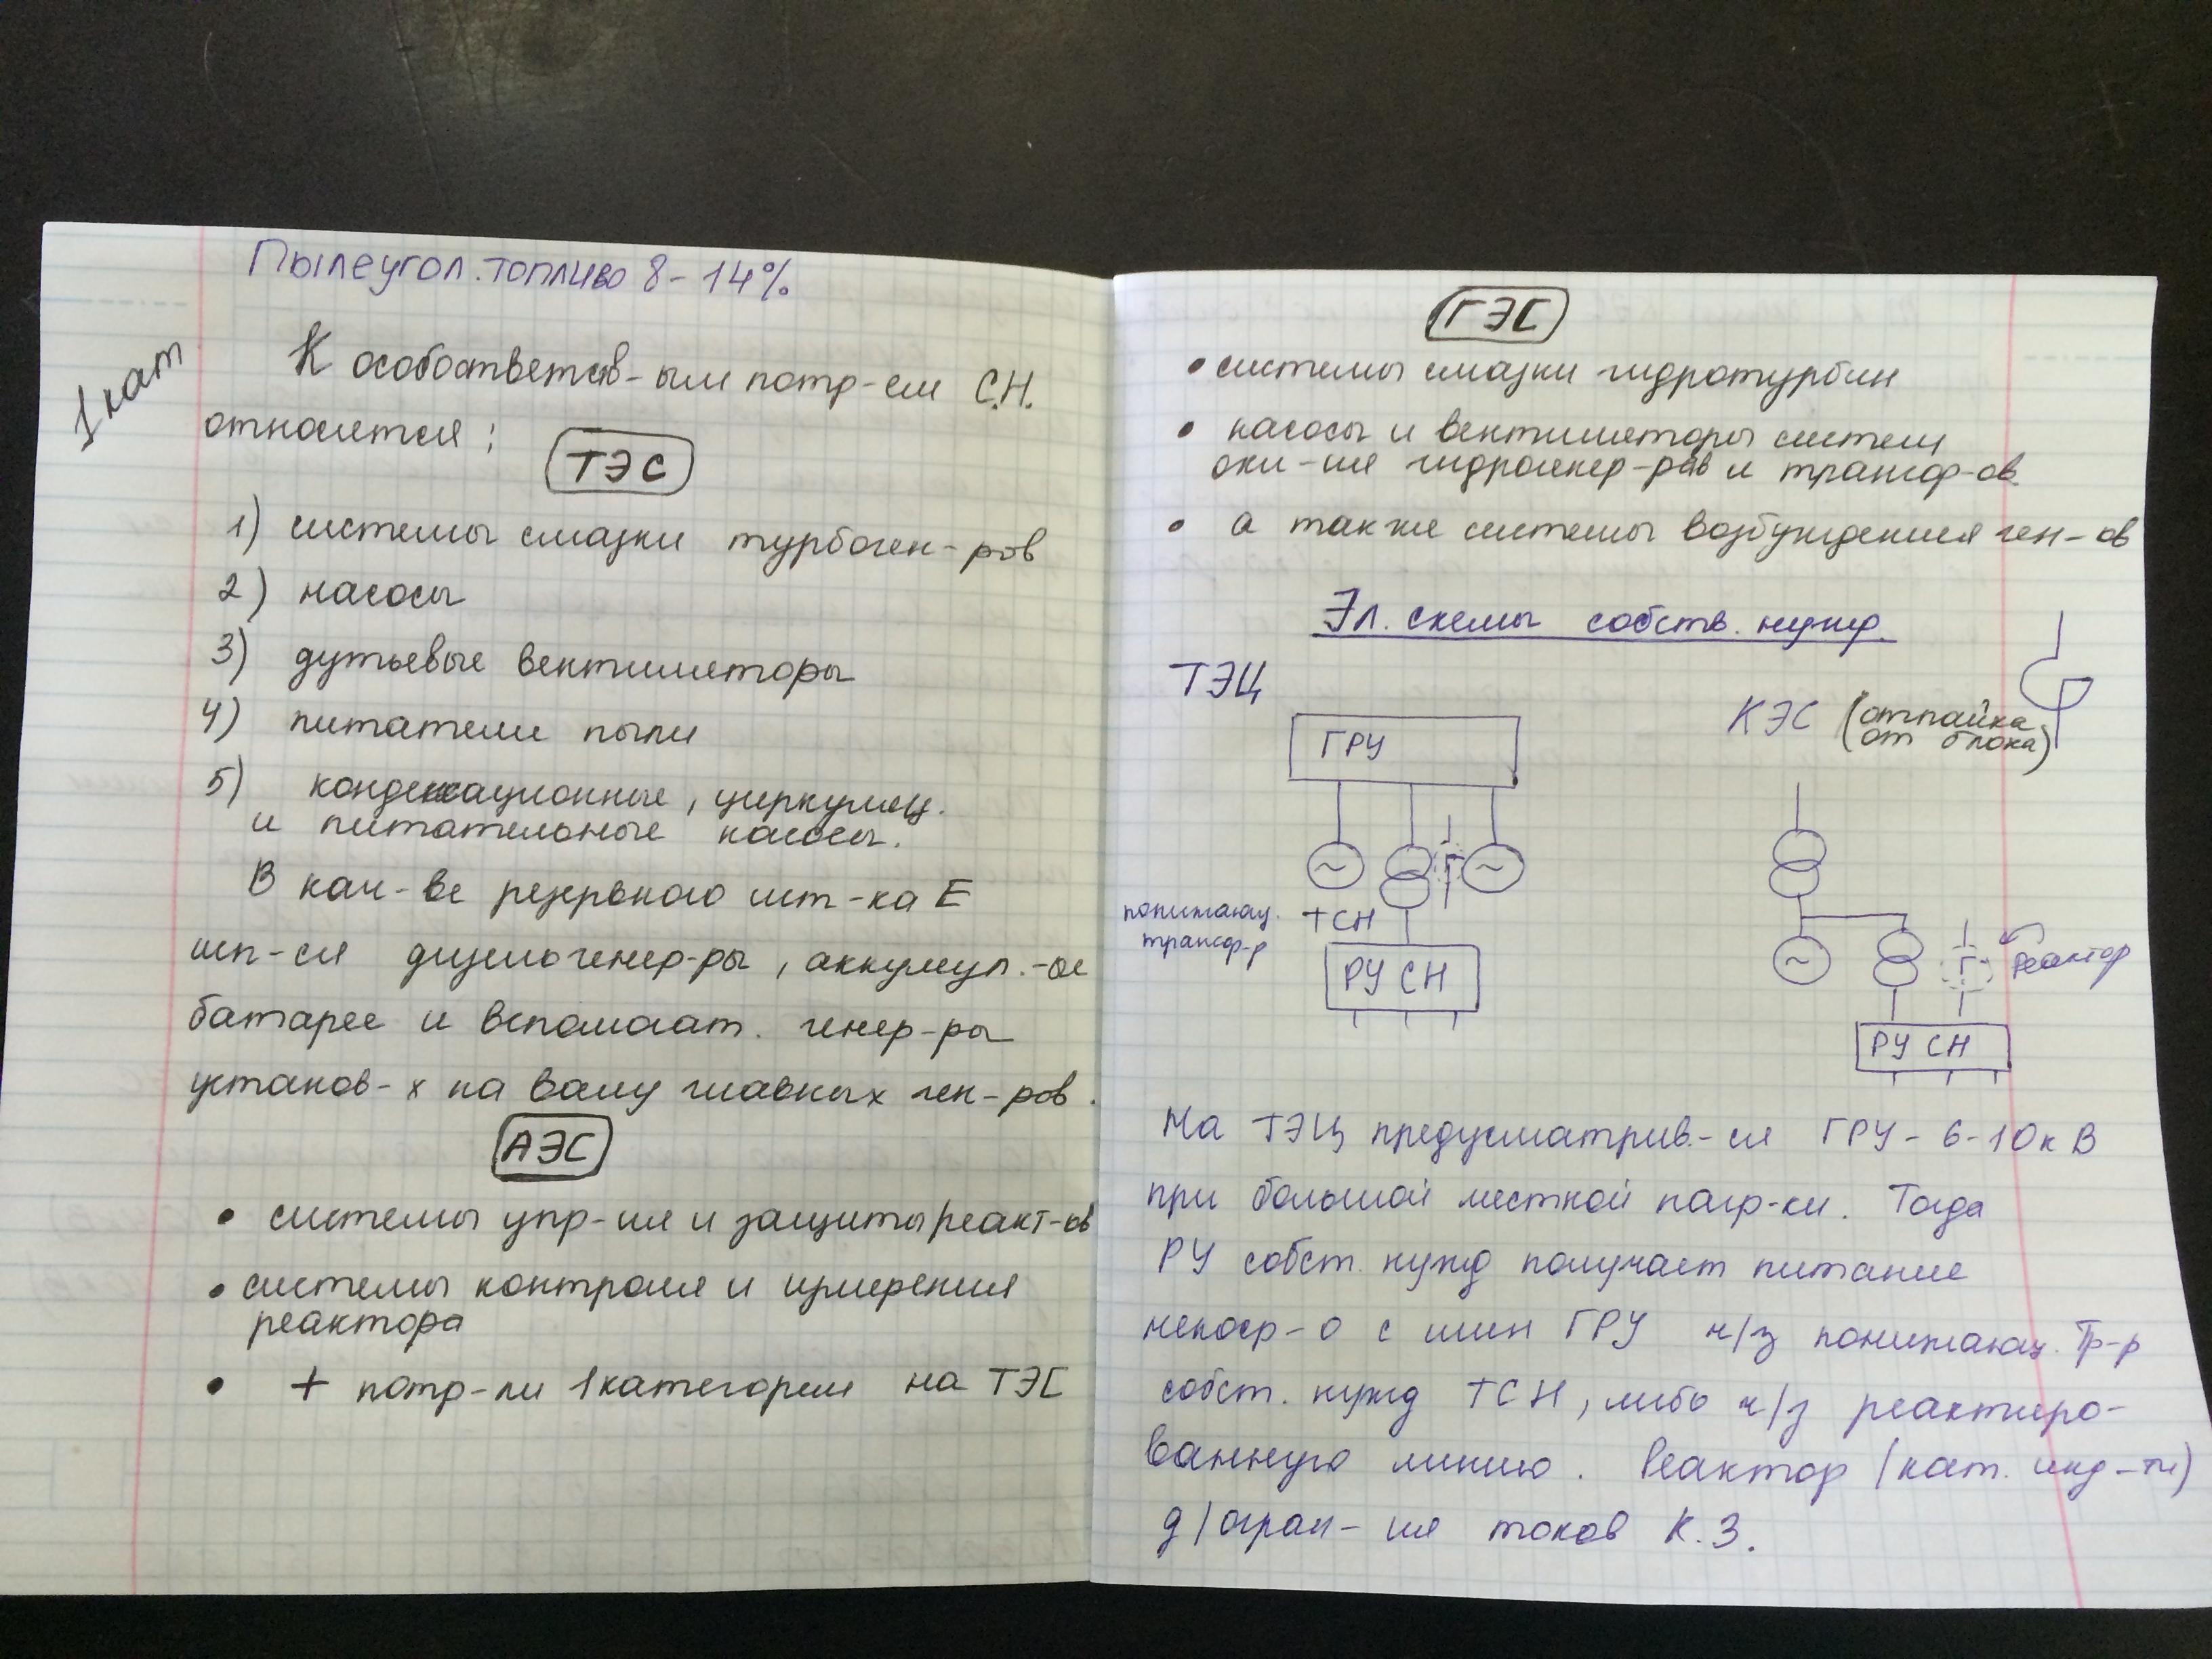 Пылеугол. топливо 8-14%
1 кат
К особоответств-ым потр-ем С.Н.
относятся:
ТЭС
1) системы смазки турбоген-ров
2) насосы
3) дутьевые вентиляторы
4) питатели пыли
5) конденсационные, циркуляц.
и питательные насосы.
В кач-ве резервного ист-ка E
исп-ся дизельгенер-ры, аккумул.-ые
батарее и вспомогат. генер-ры
установ-х на валу главных ген-ров.
АЭС
• системы упр-ия и защиты реакт-ов
• системы контроля и измерения
реактора
• + потр-ли 1 категории на ТЭС
ГЭС
• системы смазки гидротурбин
• насосы и вентиляторы систем
охл-ия гидрогенер-ров и трансф-ов
• а также системы возбуждения ген-ов
Эл. схемы собств. нужд.
ТЭЦ
КЭС (отпайка
от блока)
ГРУ
~
~
понижающ.
трансф-р
ТСН
РУ СН
~
реактор
РУ СН
На ТЭЦ предусматрив.-ся ГРУ - 6-10кВ
при большой местной нагр-ки. Тогда
РУ собст. нужд получает питание
непоср-о с шин ГРУ ч/з понижающ. Тр-р
собст. нужд ТСН, либо ч/з реактиро-
ванную линию. Реактор (кат. инд-ти)
д/огран-ия токов К.З.